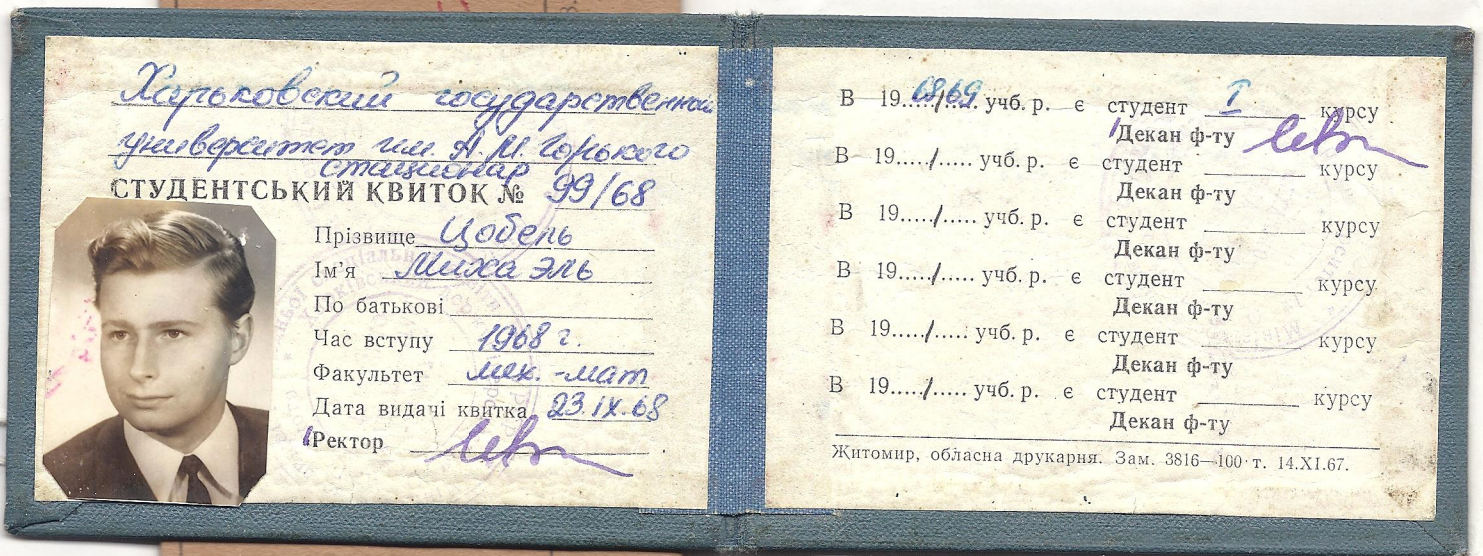 Харьковский государственный
университет им. А. М. Горького
стационар
СТУДЕНТСЬКИЙ КВИТОК № 99/68
Прізвище Цобель
Ім'я Михаэль
По батькові
Час вступу 1968 г.
Факультет мех.-мат
Дата видачі квитка 23.IX.68
Ректор
В 1968/69 учб. р. є студент I курсу
Декан ф-ту
В 19...../..... учб. р. є студент ________ курсу
Декан ф-ту
В 19...../..... учб. р. є студент ________ курсу
Декан ф-ту
В 19...../..... учб. р. є студент ________ курсу
Декан ф-ту
В 19...../..... учб. р. є студент ________ курсу
Декан ф-ту
В 19...../..... учб. р. є студент ________ курсу
Декан ф-ту
Житомир, обласна друкарня. Зам. 3816—100 т. 14.XI.67.